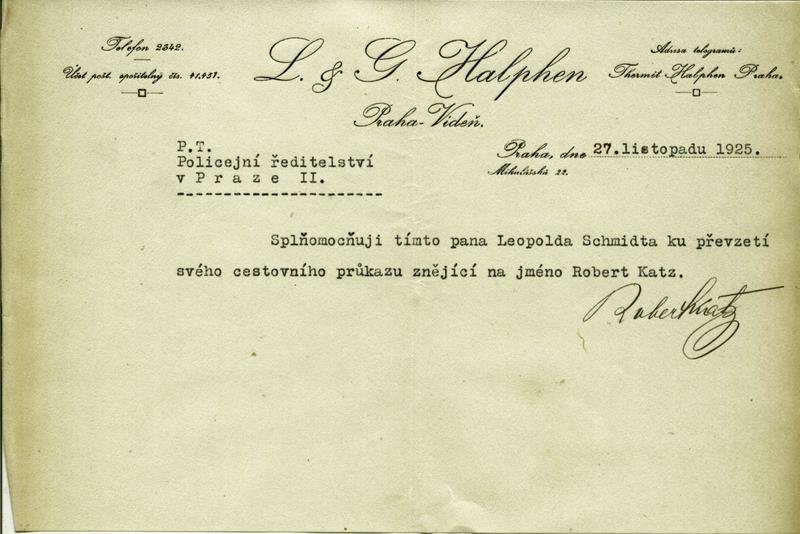 Telefon 2342.
Účet pošt. spořitelny čís. 41.437.
L. & G. Halphen
Praha-Vídeň.
Adresa telegramů:
Thermit Halphen Praha.
P.T.
Policejní ředitelství
v Praze II.
Praha, dne 27.listopadu 1925.
Mikulášská 22.
Splňomocňuji tímto pana Leopolda Schmidta ku převzetí
svého cestovního průkazu znějící na jméno Robert Katz.
Robert Katz